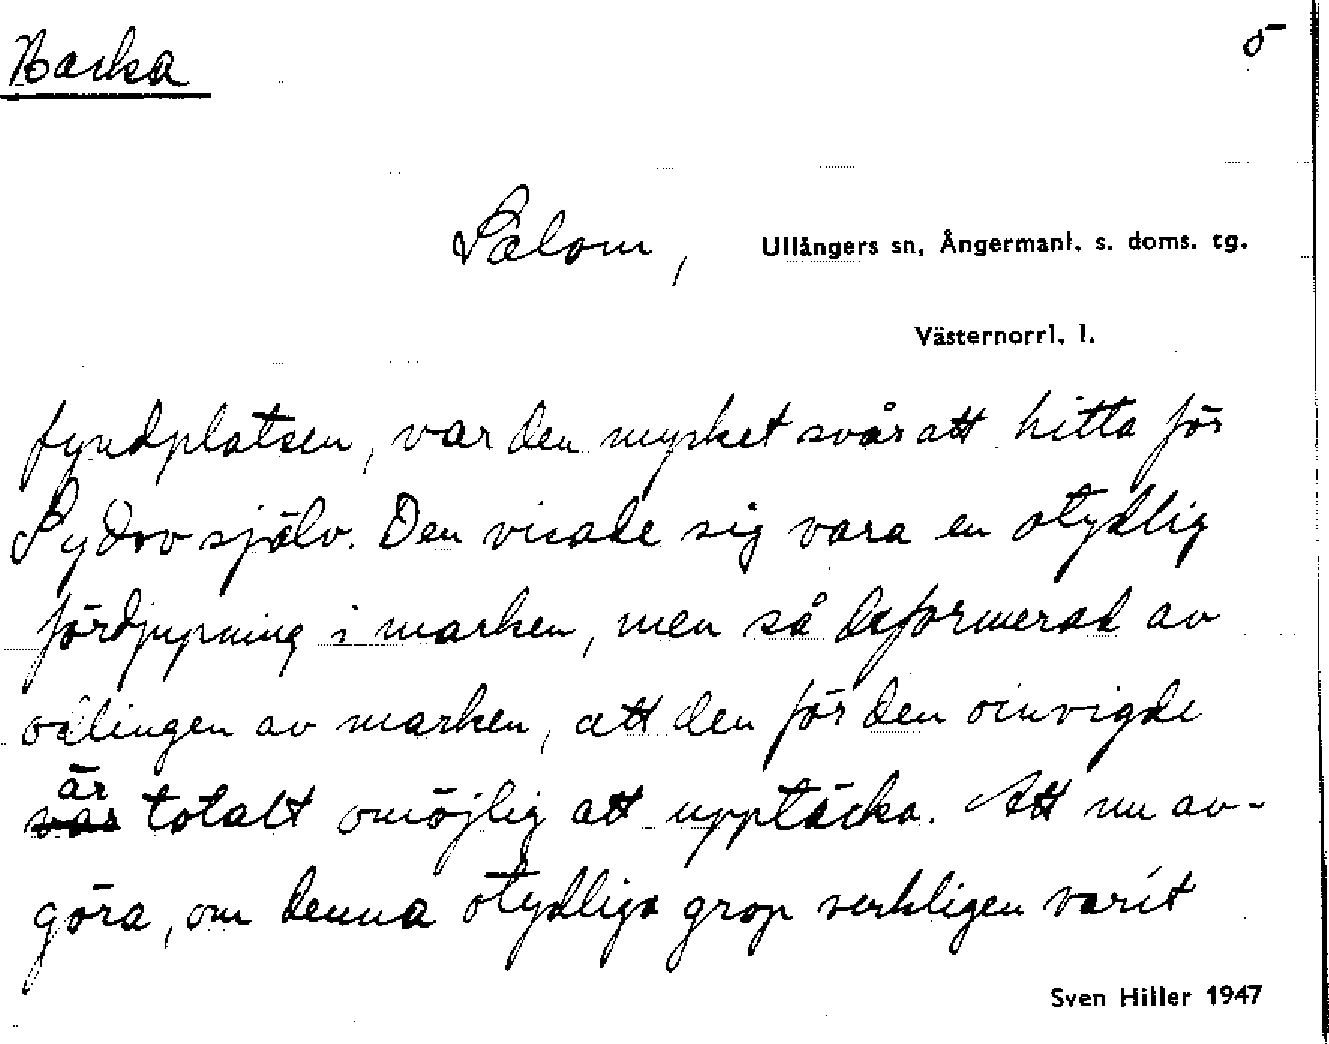 Backa
5
Salom, Ullångers sn, Ångermanl. s. doms. tg.
Västernorrl. l.
fyndplatsen, var den mycket svår att hitta för
Sydov själv. Den visade sig vara en otydlig
fördjupning i marken, men så deformerad av
odlingen av marken, att den för den oinvigde
är
var totalt omöjlig att upptäcka. Att nu av-
göra, om denna otydliga grop verkligen varit
Sven Hiller 1947